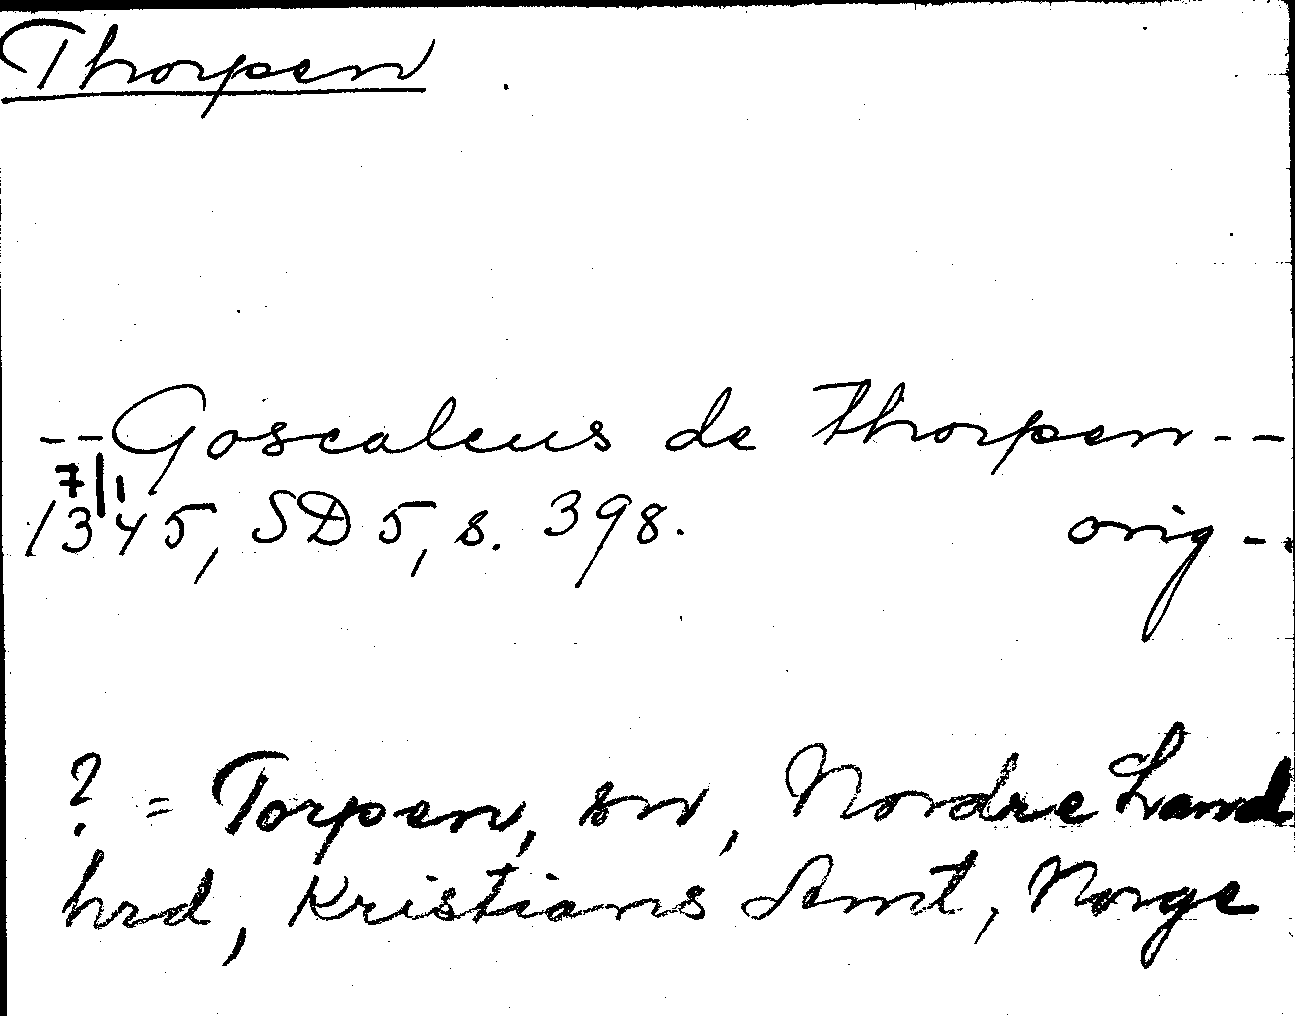 Thorpen
--Goscaleus de Thorpen--
7/1
1345, SD 5, s. 398. orig-.
? = Torpen, sn, Nordre Land
hrd, Kristians Amt, Norge